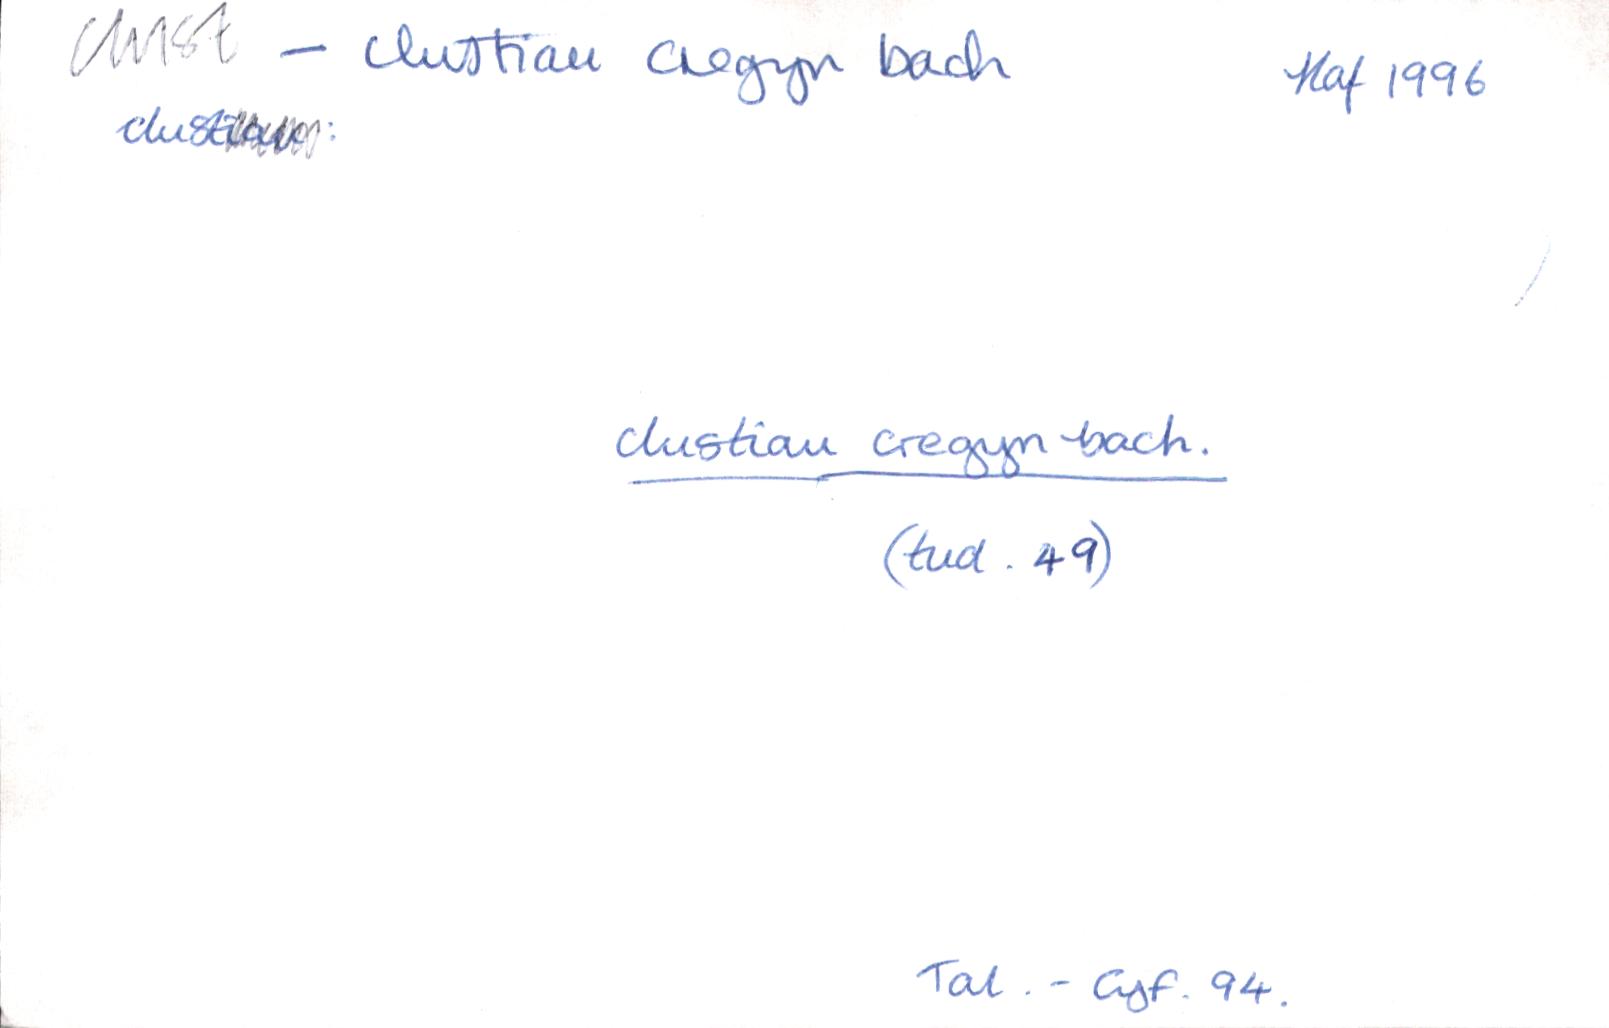 clust – clustiau cregyn bach Haf 1996
clustiau:
clustiau cregyn bach.
(tud. 49)
Tal. - Cyf. 94.